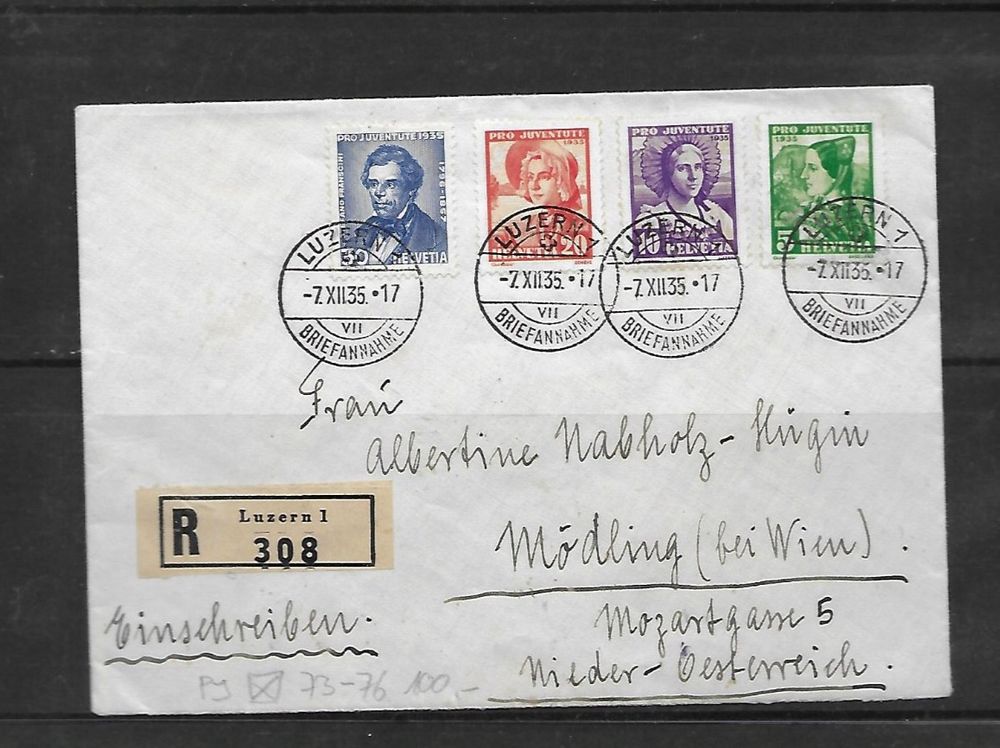 PRO JUVENTUTE 1935
STEFANO FRANSCINI
1796-1857
30 HELVETIA
PRO JUVENTUTE
1935
HELVETIA 20
PRO JUVENTUTE
1935
10 HELVETIA
PRO JUVENTUTE
1935
5 HELVETIA
LUZERN 1
-7.XII.35.•17
VII
BRIEFANNAHME
LUZERN 1
-7.XII.35.•17
VII
BRIEFANNAHME
LUZERN 1
-7.XII.35.•17
VII
BRIEFANNAHME
LUZERN 1
-7.XII.35.•17
VII
BRIEFANNAHME
Frau
Albertine Nabholz-Hügin
Mödling (bei Wien).
Mozartgasse 5
Nieder-Oesterreich.
R Luzern 1
308
Einschreiben.
PJ 73-76 100,-